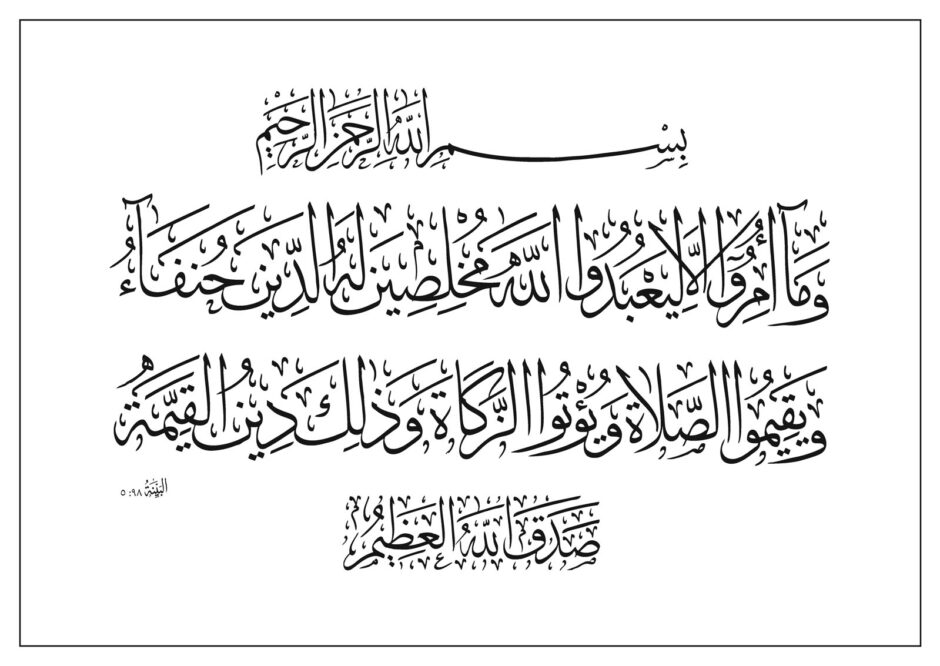 بِسْمِ اللَّهِ الرَّحْمَنِ الرَّحِيْمِ
وَمَآ أُمِرُوٓا إِلَّا لِيَعْبُدُوا اللَّهَ مُخْلِصِينَ لَهُ الدِّينَ حُنَفَآءَ
وَيُقِيمُوا الصَّلَاةَ وَيُؤْتُوا الزَّكَاةَ وَذَلِكَ دِينُ الْقَيِّمَةِ
البَيِّنَةُ ٩٨: ٥
صَدَقَ اللَّهُ الْعَظِيمُ